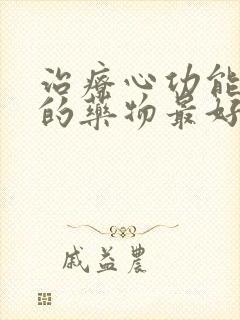 治療心功能
的藥物最好
戚益農